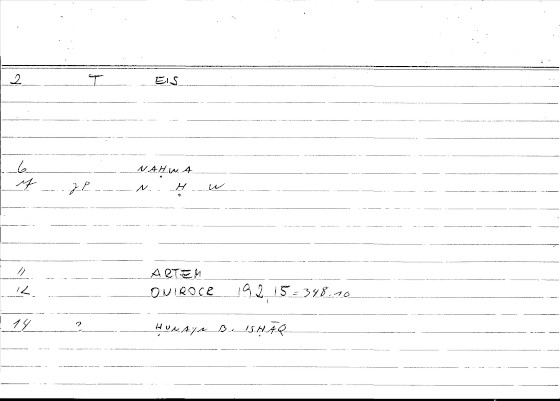 2 T EIS
6 NAḤWA
N Ḥ W
11 ARTEM
12 ONIROCR 192,15 = 348.10
14 ? ḤUNAYN B. ISḤĀQ